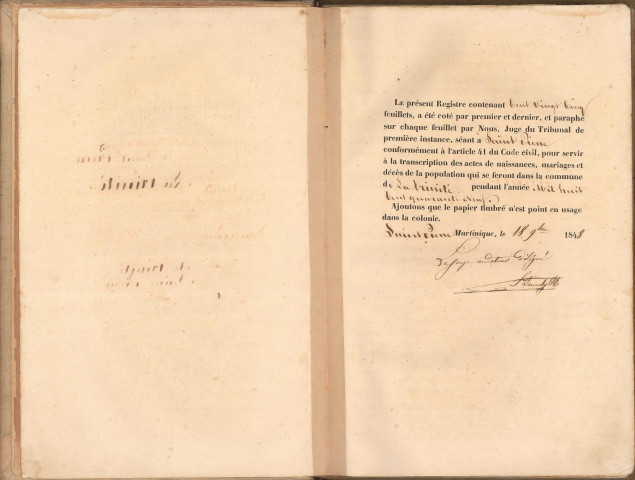 LE présent Registre contenant Cent Vingt Cinq
feuillets, a été coté par premier et dernier, et paraphé
sur chaque feuillet par Nous, Juge du Tribunal de
première instance, séant à Saint Pierre
conformément à l'article 41 du Code civil, pour servir
à la transcription des actes de naissances, mariages et
décès de la population qui se feront dans la commune
de La trinité pendant l'année Mil huit
Cent quarante neuf.
Ajoutons que le papier timbré n'est point en usage
dans la colonie.
Saint Pierre Martinique, le 18 9bre 1848
Le Juge auditeur délégué